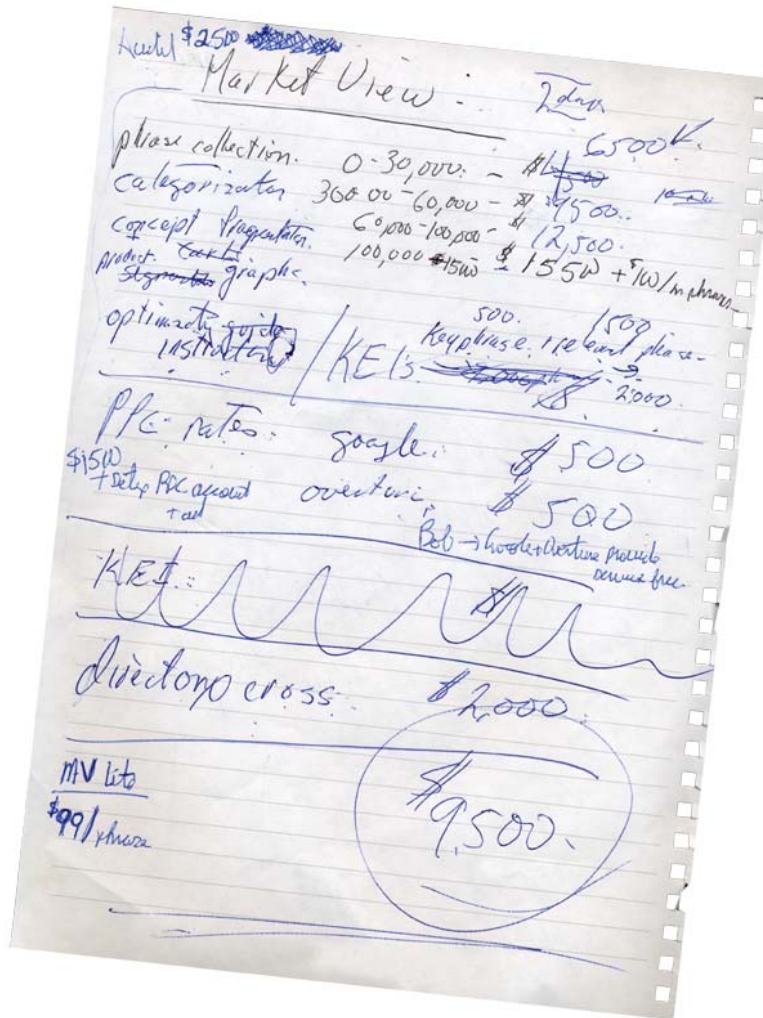 $2500
Market View : 2 days
6500
phrase collection. 0-30,000. - $
categorization 300 00-60,000 - $ 9500.
concept fragmentation. 60,000-100,000- $ 12,500.
product. graphs. 100,000 $ 15500 + $10/m phrases
optimization guide
instructions
500. 1500
KEI's Keyphrase. relevant phrase -
2000.
PPC rates: google: $500
$1500 overture, $500
+ Setup PPC account
Bob → Google+Overture provide
service free
KEI: $
directory cross $2,000.
MV Lite
$99/phrase
$9,500.